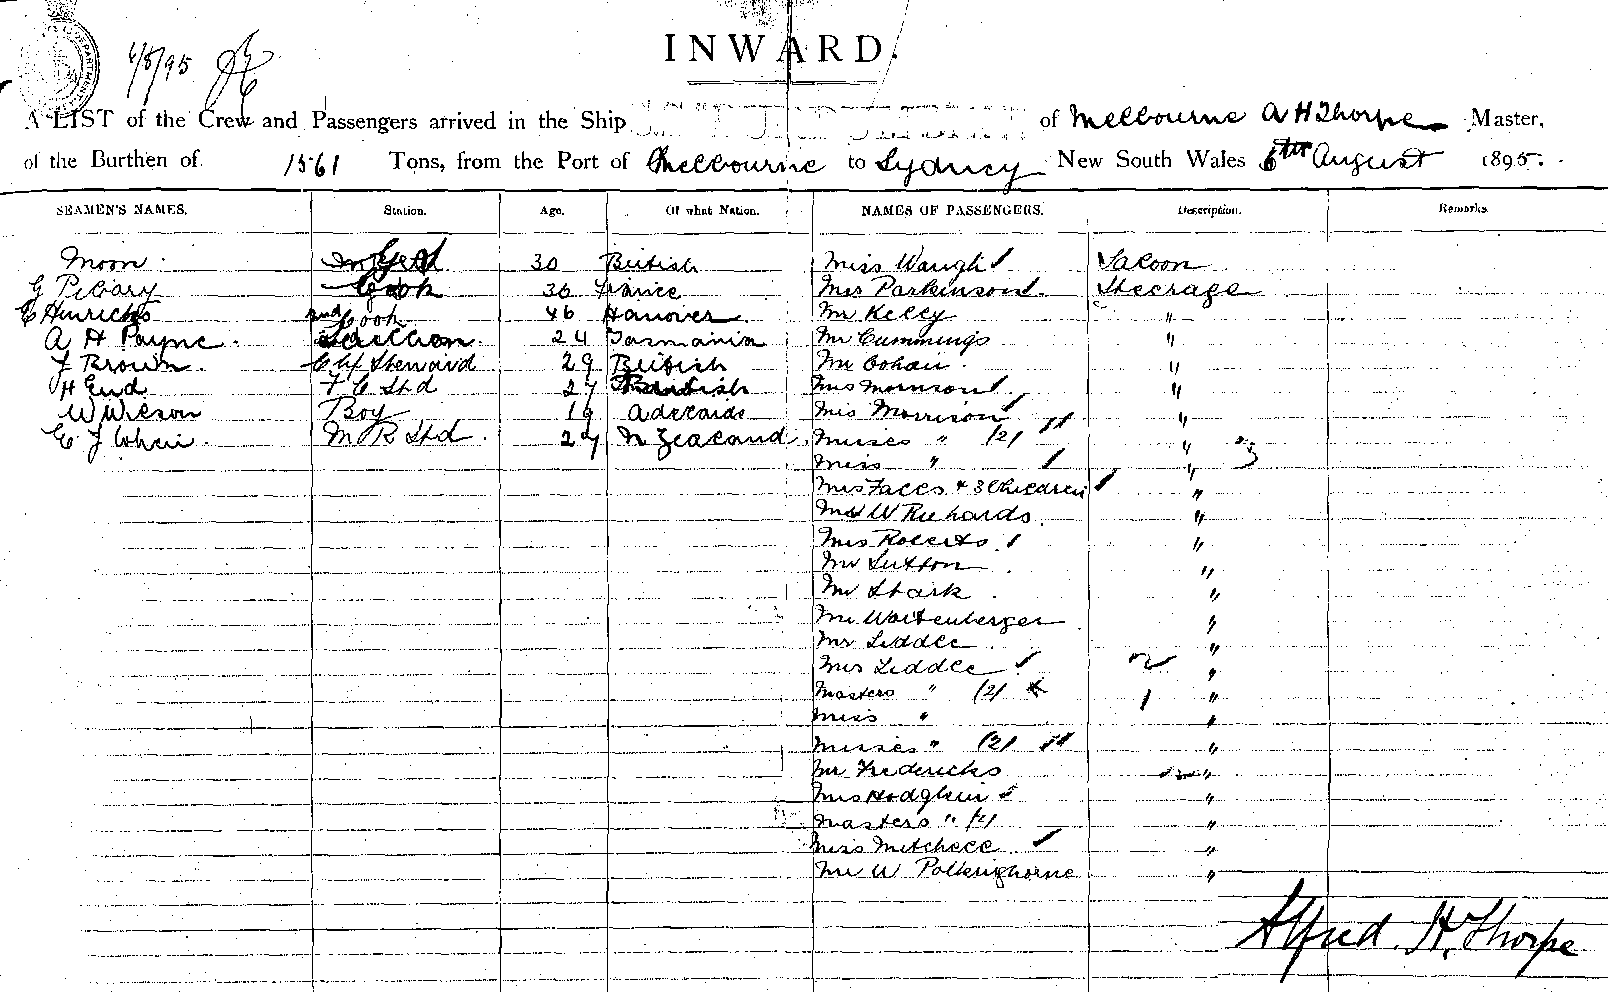 INWARD.
6/8/95
A LIST of the Crew and Passengers arrived in the Ship of Melbourne A H Thorpe Master,
of the Burthen of 1561 Tons, from the Port of Melbourne to Sydney New South Wales 6th August 1895.
SEAMEN'S NAMES. Station. Age. Of what Nation. NAMES OF PASSENGERS. Description. Remarks
Moon 30 British Miss Waugh Saloon
G Cook 36 France Mrs Parkinson Steerage
C Hinrichs 2nd Cook 46 Hanover Mr Kelly "
A H Payne 24 Tasmania Mr Cummings "
J Brown Steward 29 British Mr "
H End F C Std 27 British Mrs Morrison "
W Wilson Boy 19 Adelaide Mrs Morrison "
E J M R Std 27 N Zealand Misses " (2) " 3
Miss " "
Mrs & 3 Children "
W Richards "
Mrs Roberts "
Mr Sutton "
Mr Stark "
Mr Wartenberger "
Mr Liddle "
Mrs Liddle "
Masters " (2) 1 "
Miss " "
Misses " (2) "
Mr Fredericks "
Mrs "
Masters " (2) "
Miss Mitchell "
Mr W Polkinghorne "
Alfred H. Thorpe